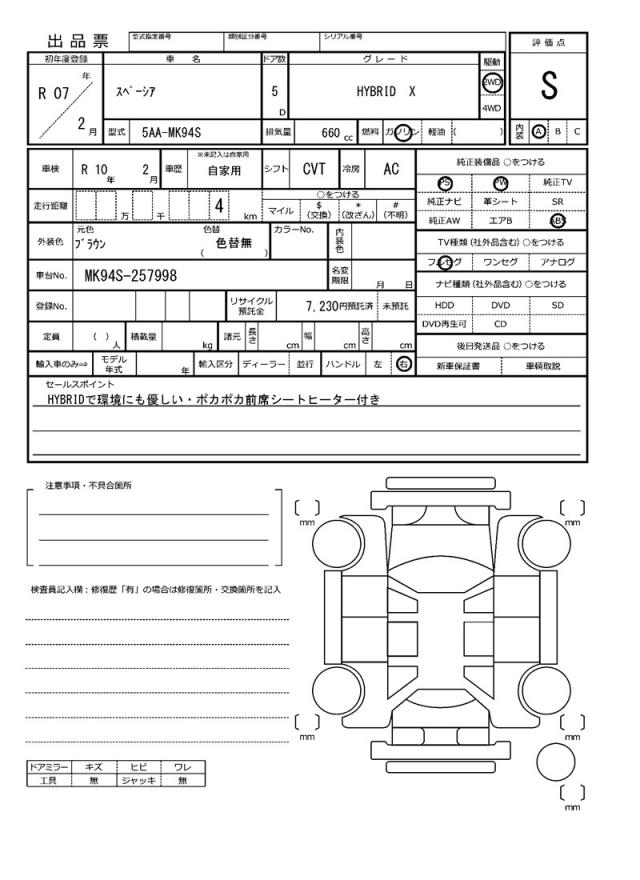 出品票
型式指定番号
類別区分番号
シリアル番号
評価点
初年度登録
車名
ドア数
グレード
駆動
R 07 年
2 月
ｽﾍﾟｰｼｱ
5 D
HYBRID X
2WD
4WD
S
型式
5AA-MK94S
排気量
660 cc
燃料
ガソリン
軽油
( )
内装
A B C
車検
R 10 年 2 月
車歴
※未記入は自家用
自家用
シフト
CVT
冷房
AC
純正装備品 ○をつける
PS
PW
純正TV
純正ナビ
革シート
SR
純正AW
エアB
ABS
走行距離
万
千
4
km
○をつける
マイル
$ (交換)
* (改ざん)
# (不明)
外装色
元色
ﾌﾞﾗｳﾝ
色替
( 色替無 )
カラーNo.
内装色
TV種類 (社外品含む) ○をつける
フルセグ
ワンセグ
アナログ
車台No.
MK94S-257998
名変期限
月 日
ナビ種類 (社外品含む) ○をつける
HDD
DVD
SD
DVD再生可
CD
登録No.
リサイクル預託金
7,230円預託済
未預託
定員
( ) 人
積載量
kg
諸元
長さ
cm
幅
cm
高さ
cm
後日発送品 ○をつける
新車保証書
車輌取説
輸入車のみ⇒
モデル年式
年
輸入区分
ディーラー
並行
ハンドル
左
右
セールスポイント
HYBRIDで環境にも優しい・ポカポカ前席シートヒーター付き
注意事項・不具合箇所
検査員記入欄：修復歴「有」の場合は修復箇所・交換箇所を記入
mm
mm
mm
mm
mm
ドアミラー
キズ
ヒビ
ワレ
工具
無
ジャッキ
無